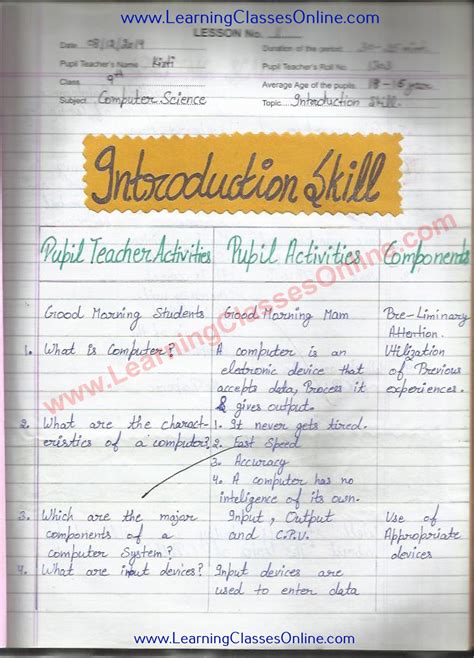 www.LearningClassesOnline.com
LESSON No. 1
Date 08/12/2019 Duration of the period:
Pupil Teacher's Name Kirti Pupil Teacher's Roll No.
Class 9th Average Age of the pupils
Subject Computer Science Topic Introduction Skill.
Introduction Skill
Pupil Teacher Activities Pupil Activities Components
Good Morning Students Good Morning Mam Pre-Liminary
Attention.
1. What is Computer? A computer is an Utilization
eletronic device that of Previous
accepts data, Process it experiences.
& gives output.
2. What are the charact- 1. It never gets tired.
eristics of a computer? 2. Fast Speed
3. Accuracy
4. A computer has no
inteligence of its own.
3. Which are the major Input, Output Use of
components of a and C.P.U. Appropriate
computer System? devices
4. What are input devices? Input devices are
used to enter data
www.LearningClassesOnline.com
www.LearningClassesOnline.com